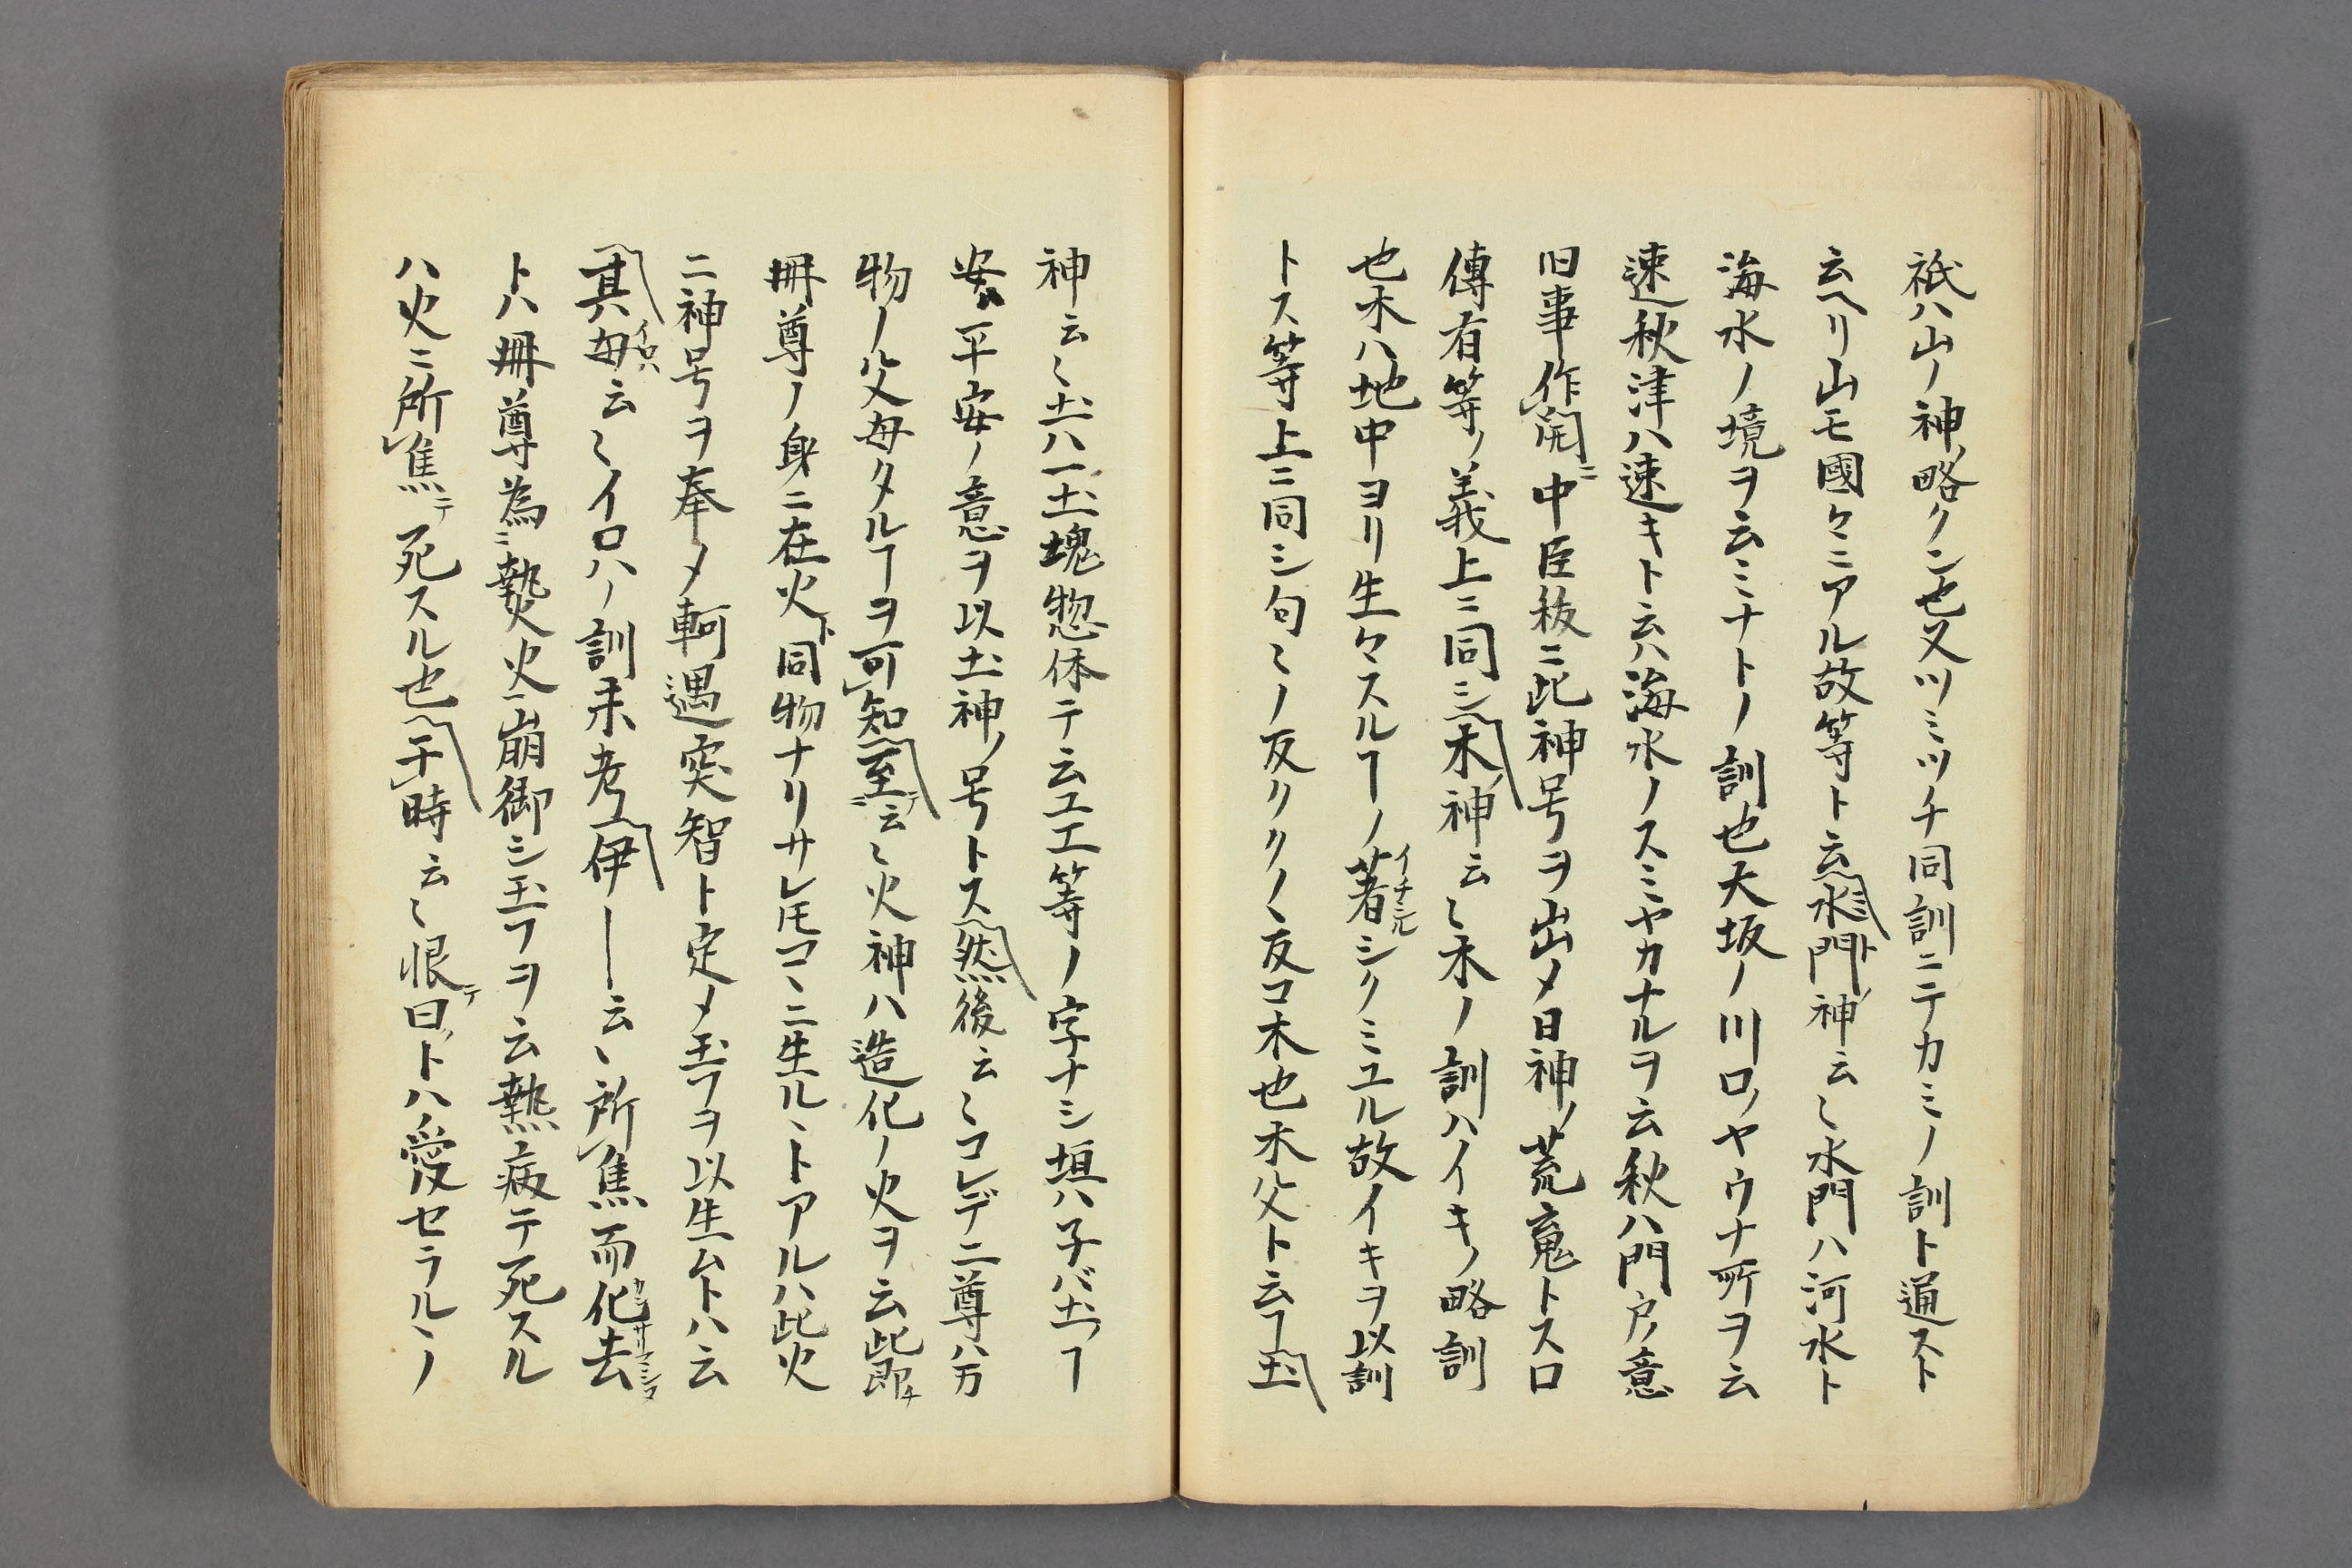 祇ハ山ノ神ノ略クン也又ツミツチ同訓ニテカミノ訓ト通スト
云ヘリ山モ國々ニアル故等ト云水門神云〻水門ハ河水ト
海水ノ境ヲ云ミナトノ訓也大坂ノ川口ノヤウナ所ヲ云
速秋津ハ速キト云ハ海水ノスミヤカナルヲ云秋ハ門戸ノ意
旧事作開ニ中臣秡ニ此神号ヲ出メ日神ノ荒魂トス口
傳有等ノ義上ニ同シ木神云〻木ノ訓ハイキノ略訓
也木ハ地中ヨリ生々スルヿノ著シクミユル故イキヲ以訓
トス等上ニ同シ句〻ノ反リクノ〻反コ木也木父ト云ヿ土
神云〻土ハ一土塊惣体テ云エ工等ノ字ナシ垣ハ子バ土ヿ
安ハ平安ノ意ヲ以土神ノ号トス然後云〻コレデ二尊ハ万
物ノ父母タルヿヲ可知至云〻火神ハ造化ノ火ヲ云此即
冊尊ノ身ニ在火ト同物ナリサレ𪜈コ〻ニ生ル〻トアルハ此火
ニ神号ヲ奉メ軻遇突智ト定メ玉フヲ以生ムトハ云
其母云〻イロハノ訓未考エ伊―云〻所焦而化去
トハ冊尊為ニ𤍠火ニ崩御シ玉フヲ云熱病テ死スル
ハ火ニ所焦テ死スル也于時云〻恨テ曰トハ愛セラル〻ノ